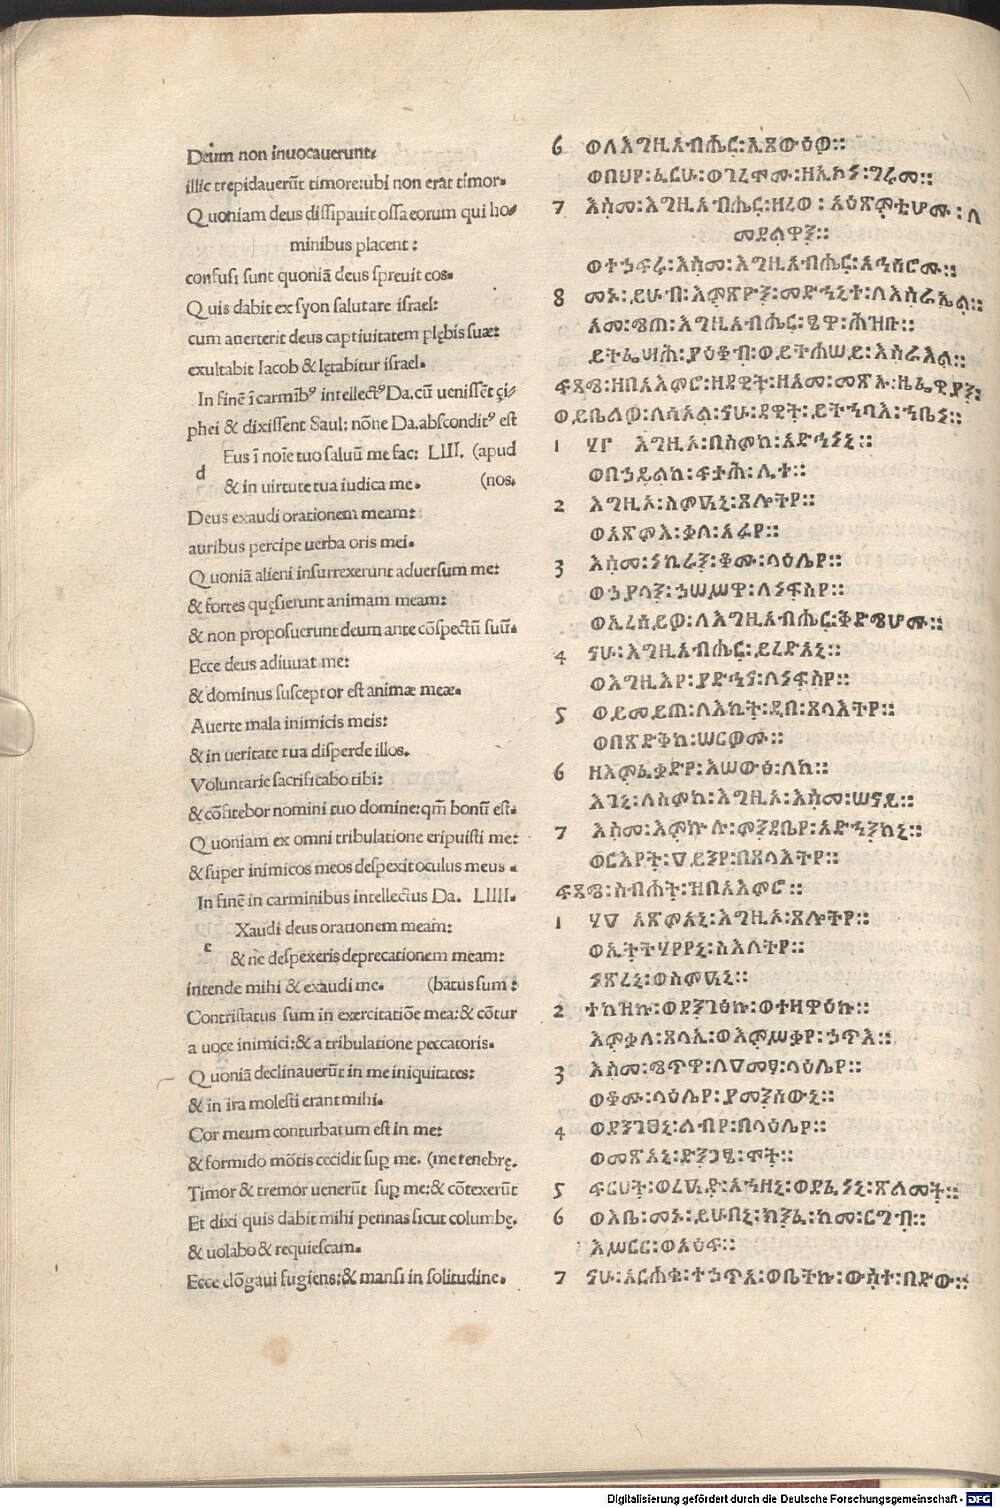 Deum non inuocauerunt:
illic trepidauerūt timore:ubi non erat timor.
Quoniam deus dissipauit ossa eorum qui ho-
minibus placent:
confusi sunt quoniā deus spreuit eos.
Quis dabit ex syon salutare israel:
cum auerterit deus captiuitatem plębis suæ:
exultabit Iacob & lętabitur israel.
In finē ī carmibꝰ intellectꝰ Da. cū uenissēt çi-
phei & dixissent Saul: nōne Da. absconditꝰ est
Eus ī noīe tuo saluū me fac: LIII. (apud
d & in uirtute tua iudica me. (nos.
Deus exaudi orationem meam:
auribus percipe uerba oris mei.
Quoniā alieni insurrexerunt aduersum me:
& fortes quęsierunt animam meam:
& non proposuerunt deum ante cōspectū suū.
Ecce deus adiuuat me:
& dominus susceptor est animæ meæ.
Auerte mala inimicis meis:
& in ueritate tua disperde illos.
Voluntarie sacrificabo tibi:
& cōfitebor nomini tuo domine: qm̄ bonū est.
Quoniam ex omni tribulatione eripuisti me:
& super inimicos meos despexit oculus meus.
In finē in carminibus intellectus Da. LIIII.
Xaudi deus orationem meam:
e & ne despexeris deprecationem meam:
intende mihi & exaudi me. (batus sum:
Contristatus sum in exercitatiōe mea:& cōtur
a uoce inimici:& a tribulatione peccatoris.
Quoniā declinauerūt in me iniquitates:
& in ira molesti erant mihi.
Cor meum conturbatum est in me:
& formido mōtis cecidit sup me. (me tenebrę.
Timor & tremor uenerūt sup me:& cōtexerūt
Et dixi quis dabit mihi pennas sicut columbę.
& uolabo & requiescam.
Ecce elōgaui fugiens:& mansi in solitudine.
6 ወለእግዚአብሔር፡ኢጸውዑዎ።
ወበህየ፡ፈርሁ፡ወገረሞሙ፡ዘኢኮነ፡ግሩመ።
7 እስመ፡እግዚአብሔር፡ዘረወ፡አዕጽምቲሆሙ፡ለ
መደልዋን።
ወተኃፍሩ፡እስመ፡እግዚአብሔር፡አኅሰሮሙ።
8 መኑ፡ይሁብ፡እምጽዮን፡መድኀኒተ፡ለእስራኤል።
አመ፡ሜጠ፡እግዚአብሔር፡ፄዋ፡ሕዝቡ።
ይትፌሣሕ፡ያዕቆብ፡ወይትሐሠይ፡እስራኤል።
ፍጻሜ፡ዘበአእምሮ፡ዘዳዊት፡ዘአመ፡መጽኡ፡ዜፌዋያን፡
ወይቤልዎ፡ለሳኦል፡ናሁ፡ዳዊት፡ይትኀባእ፡ኀቤነ።
1 ፶፫ እግዚኦ፡በስምከ፡አድኅነኒ።
ወበኃይልከ፡ፍታሕ፡ሊተ።
2 እግዚኦ፡ስምዐኒ፡ጸሎትየ።
ወአጽምእ፡ቃለ፡አፉየ።
3 እስመ፡ነኪራን፡ቆሙ፡ላዕሌየ።
ወኃያላን፡ኃሠሥዋ፡ለነፍስየ።
ወኢረሰይዎ፡ለእግዚአብሔር፡ቅድሜሆሙ።
4 ናሁ፡እግዚአብሔር፡ይረድአኒ።
ወእግዚእየ፡ያድኅና፡ለነፍስየ።
5 ወይመይጣ፡ለእኪት፡ዲበ፡ጸላእትየ።
ወበጽድቅከ፡ሠርዎሙ።
6 ዘእምፈቃድየ፡እሠውዕ፡ለከ።
እገኒ፡ለስምከ፡እግዚኦ፡እስመ፡ሠናይ።
7 እስመ፡እምኵሉ፡ምንዳቤየ፡አድኀንከኒ።
ወርእየት፡ዐይንየ፡በጸላእትየ።
ፍጻሜ፡ስብሐት፡ዘበአእምሮ።
1 ፶፬ አጽምአኒ፡እግዚኦ፡ጸሎትየ።
ወኢትትሀየየኒ፡ስእለትየ።
ነጽረኒ፡ወስምዐኒ።
2 ተከዝኩ፡ወደንገፅኩ፡ወተዘዋዕኩ።
እምቃለ፡ጸላኢ፡ወእምሥቃየ፡ኃጥእ።
3 እስመ፡ሜጥዋ፡ለዐመፃ፡ላዕሌየ።
ወቆሙ፡ላዕሌየ፡ያመንስዉኒ።
4 ወደንገፀኒ፡ልብየ፡በላዕሌየ።
ወመጽአኒ፡ድንጋፄ፡ሞት።
5 ፍርሀት፡ወረዐድ፡አኀዘኒ፡ወደፈነኒ፡ጽልመት።
6 ወእቤ፡መኑ፡ይሁበኒ፡ክንፈ፡ከመ፡ርግብ።
እሥርር፡ወአዕርፍ።
7 ናሁ፡አርሐቁ፡ተኃጥአ፡ወቤትኩ፡ውስተ፡በድው።
Digitalisierung gefördert durch die Deutsche Forschungsgemeinschaft - DFG